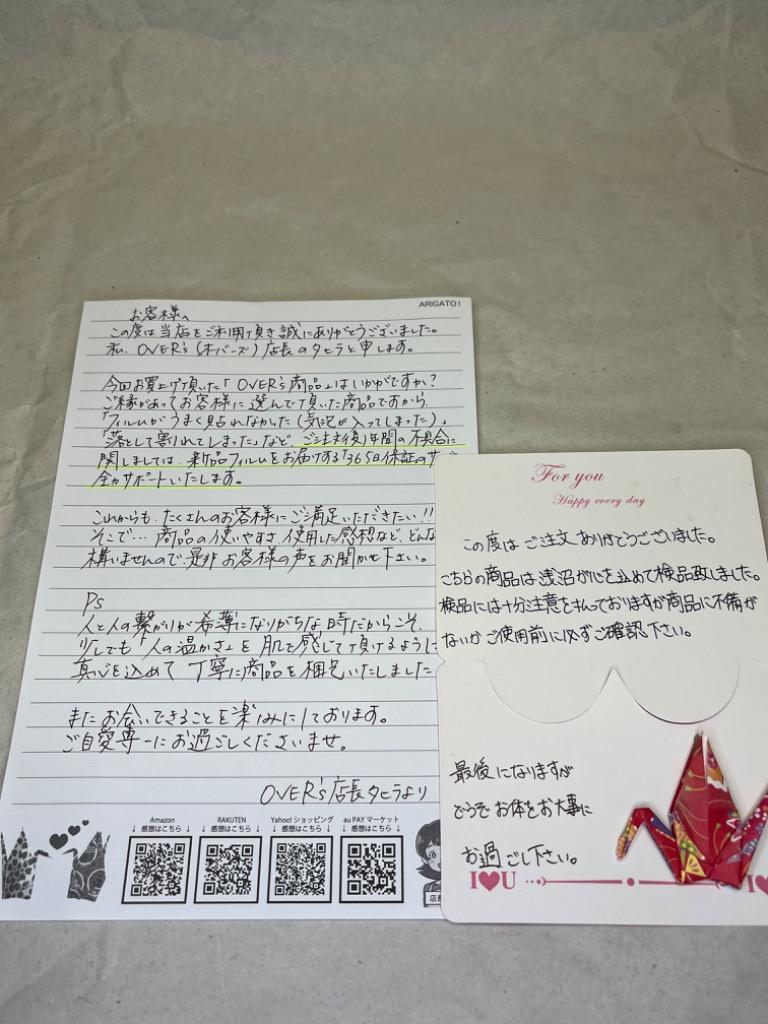 ARIGATO!
お客様へ
この度は当店をご利用頂き誠にありがとうございました。
私、OVER's(オバーズ)店長のタヒラと申します。
今回お買上げ頂いた「OVER's商品」はいかがですか?
ご縁があってお客様に選んで頂いた商品ですから
「フィルムがうまく貼れなかった(気泡が入ってしまった)」
「落として割れてしまった」など、ご注文後1年間の不具合に
関しましては、新品フィルムをお届けする「365日保証のサ
全力サポートいたします。
これからも、たくさんのお客様にご満足いただきたい!!
そこで… 商品の使いやすさ、使用した感想など、どんな
構いませんので、是非お客様の声をお聞かせ下さい。
Ps
人と人の繋がりが希薄になりがちな時だからこそ、
少しでも「人の温かさ」を肌で感じて頂けるように
真心を込めて丁寧に商品を梱包いたしました
またお会いできることを楽しみにしております。
ご自愛専一にお過ごしくださいませ。
OVER's店長タヒラより
Amazon
↓ 感想はこちら ↓
RAKUTEN
↓ 感想はこちら ↓
Yahoo!ショッピング
↓ 感想はこちら ↓
au PAY マーケット
↓ 感想はこちら ↓
店長
For you
Happy every day
この度はご注文ありがとうございました。
こちらの商品は浅沼が心を込めて検品致しました。
検品には十分注意を払っておりますが商品に不備が
ないかご使用前に必ずご確認下さい。
最後になりますが
どうぞお体をお大事に
お過ごし下さい。
I♥U
I♥